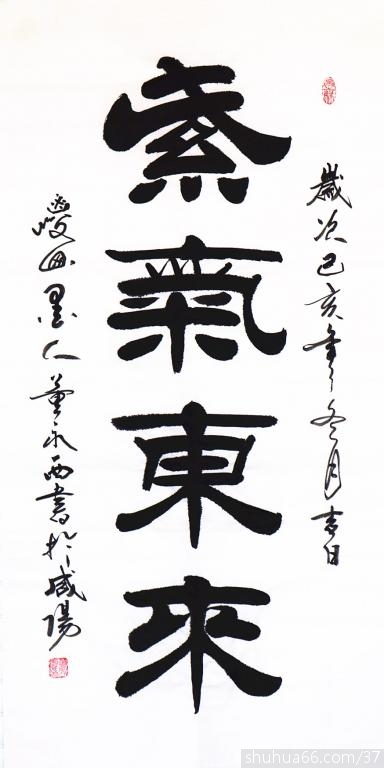 歲次己亥年冬月吉日
紫氣東來
墨人董永西書於咸陽
shuhua66.com/37